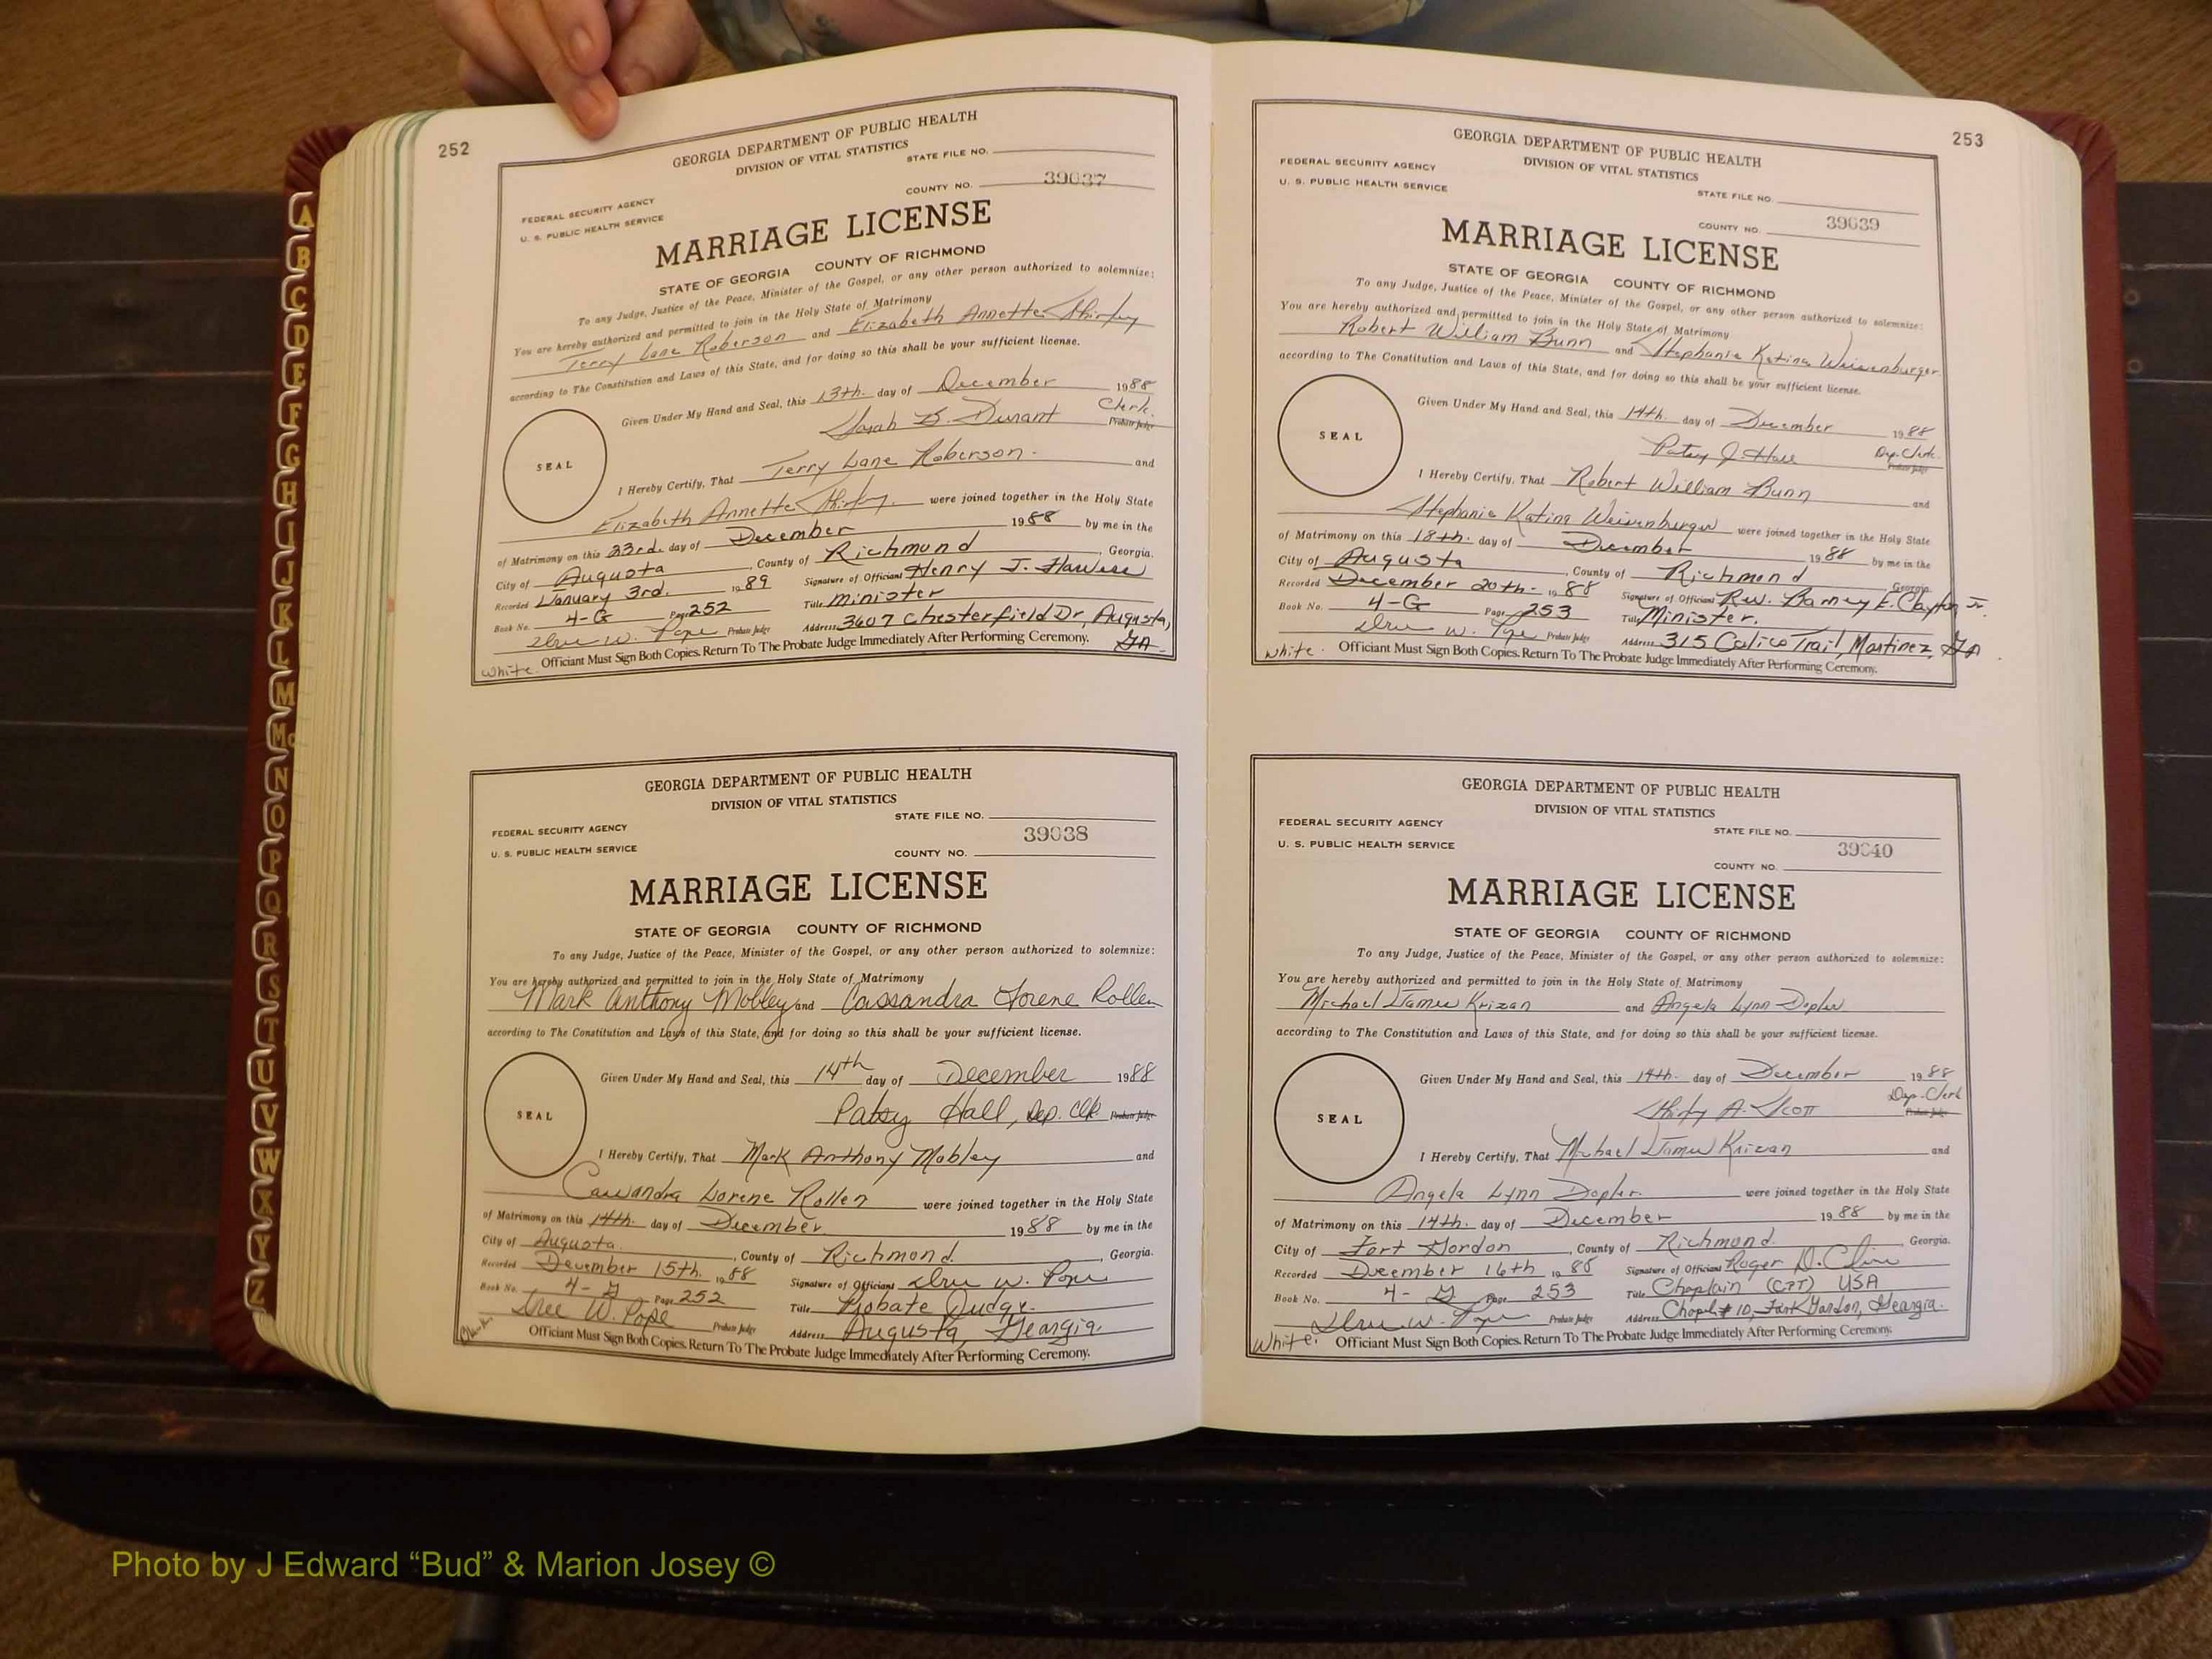 252
GEORGIA DEPARTMENT OF PUBLIC HEALTH
DIVISION OF VITAL STATISTICS
STATE FILE NO.
COUNTY NO. 39037
FEDERAL SECURITY AGENCY
U. S. PUBLIC HEALTH SERVICE
MARRIAGE LICENSE
STATE OF GEORGIA COUNTY OF RICHMOND
To any Judge, Justice of the Peace, Minister of the Gospel, or any other person authorized to solemnize:
You are hereby authorized and permitted to join in the Holy State of Matrimony
Terry Lane Roberson and Elizabeth Annette Shirley
according to The Constitution and Laws of this State, and for doing so this shall be your sufficient license.
Given Under My Hand and Seal, this 13th. day of December 1988
Sarah B. Durant Clerk. Probate Judge
SEAL
I Hereby Certify, That Terry Lane Roberson. and
Elizabeth Annette Shirley. were joined together in the Holy State
of Matrimony on this 23rd. day of December 1988 by me in the
City of Augusta, County of Richmond, Georgia.
Recorded January 3rd. 1989 Signature of Officiant Henry J.
Book No. 4-G Page 252 Title Minister
Probate Judge Address 3607 Chesterfield Dr, Augusta, GA
White. Officiant Must Sign Both Copies. Return To The Probate Judge Immediately After Performing Ceremony.
GEORGIA DEPARTMENT OF PUBLIC HEALTH
DIVISION OF VITAL STATISTICS
STATE FILE NO.
39038
FEDERAL SECURITY AGENCY
U. S. PUBLIC HEALTH SERVICE
COUNTY NO.
MARRIAGE LICENSE
STATE OF GEORGIA COUNTY OF RICHMOND
To any Judge, Justice of the Peace, Minister of the Gospel, or any other person authorized to solemnize:
You are hereby authorized and permitted to join in the Holy State of Matrimony
Mark Anthony Mobley and Cassandra Lorene Rollen
according to The Constitution and Laws of this State, and for doing so this shall be your sufficient license.
Given Under My Hand and Seal, this 14th day of December 1988
Patsy Hall, Dep. Clk Probate Judge
SEAL
I Hereby Certify, That Mark Anthony Mobley and
Cassandra Lorene Rollen were joined together in the Holy State
of Matrimony on this 14th. day of December 1988 by me in the
City of Augusta, County of Richmond. Georgia.
Recorded December 15th. 1988 Signature of Officiant W. Pope
Book No. 4-G Page 252 Title Probate Judge.
W. Pope Probate Judge Address Augusta, Georgia.
Officiant Must Sign Both Copies. Return To The Probate Judge Immediately After Performing Ceremony.
253
GEORGIA DEPARTMENT OF PUBLIC HEALTH
DIVISION OF VITAL STATISTICS
FEDERAL SECURITY AGENCY
U. S. PUBLIC HEALTH SERVICE
STATE FILE NO.
COUNTY NO. 39039
MARRIAGE LICENSE
STATE OF GEORGIA COUNTY OF RICHMOND
To any Judge, Justice of the Peace, Minister of the Gospel, or any other person authorized to solemnize:
You are hereby authorized and permitted to join in the Holy State of Matrimony
Robert William Bunn and Stephanie Katina Weisenburger
according to The Constitution and Laws of this State, and for doing so this shall be your sufficient license.
Given Under My Hand and Seal, this 14th. day of December 1988
Patsy J. Hall Dep. Clerk. Probate Judge
SEAL
I Hereby Certify, That Robert William Bunn and
Stephanie Katina Weisenburger were joined together in the Holy State
of Matrimony on this 18th. day of December 1988 by me in the
City of Augusta, County of Richmond, Georgia
Recorded December 20th. 1988 Signature of Officiant Rev. Barney E. Clayton Jr.
Book No. 4-G Page 253 Title Minister.
Probate Judge Address 315 Calico Trail, Martinez, GA
White. Officiant Must Sign Both Copies. Return To The Probate Judge Immediately After Performing Ceremony.
GEORGIA DEPARTMENT OF PUBLIC HEALTH
DIVISION OF VITAL STATISTICS
FEDERAL SECURITY AGENCY
STATE FILE NO.
U. S. PUBLIC HEALTH SERVICE
39040
COUNTY NO.
MARRIAGE LICENSE
STATE OF GEORGIA COUNTY OF RICHMOND
To any Judge, Justice of the Peace, Minister of the Gospel, or any other person authorized to solemnize:
You are hereby authorized and permitted to join in the Holy State of Matrimony
Michael James Krizan and Angela Lynn Dopler
according to The Constitution and Laws of this State, and for doing so this shall be your sufficient license.
Given Under My Hand and Seal, this 14th. day of December 1988
Shirley A. Scott Dep. Clerk Probate Judge
SEAL
I Hereby Certify, That Michael James Krizan and
Angela Lynn Dopler. were joined together in the Holy State
of Matrimony on this 14th. day of December 1988 by me in the
City of Fort Gordon, County of Richmond. Georgia.
Recorded December 16th 1988 Signature of Officiant Roger D. Cline
Book No. 4-G Page 253 Title Chaplain (CPT) USA
Probate Judge Address Chapel # 10, Fort Gordon, Georgia.
White. Officiant Must Sign Both Copies. Return To The Probate Judge Immediately After Performing Ceremony.
A
B
C
D
E
F
G
H
I
J
K
L
M
Mc
N
O
P
Q
R
S
T
U
V
W
X
Y
Z
Photo by J Edward “Bud” & Marion Josey ©